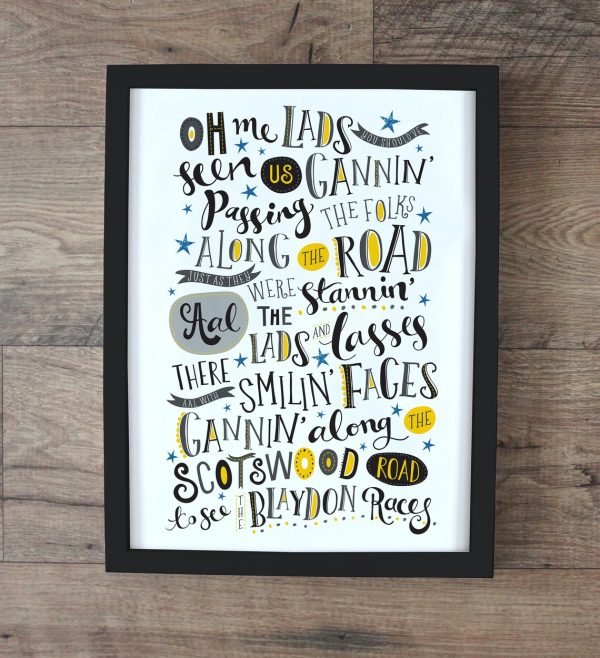 OH me LADS YOU SHOULD'VE
seen US GANNIN'
Passing THE FOLKS
ALONG THE ROAD
JUST AS THEY WERE Stannin'
Aal THE LADS AND Lasses
THERE AAL WITH SMILIN' FACES
GANNIN' along THE
SCOTSWOOD ROAD
to see THE BLAYDON Races